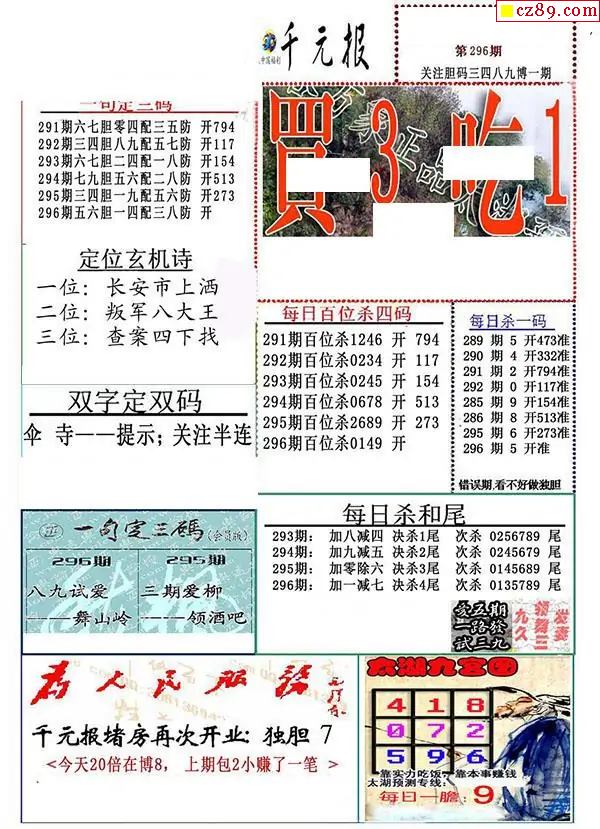 cz89.com
千元报
第296期
关注胆码三四八九博一期
一句定三码
291期六七胆零四配三五防 开794
292期三四胆八九配五七防 开117
293期六七胆二四配一八防 开154
294期七九胆五六配二八防 开513
295期三四胆一九配五六防 开273
296期五六胆一四配三八防 开
買3吃1
定位玄机诗
一位: 长安市上洒
二位: 叛军八大王
三位: 查案四下找
每日百位杀四码
291期百位杀1246 开 794
292期百位杀0234 开 117
293期百位杀0245 开 154
294期百位杀0678 开 513
295期百位杀2689 开 273
296期百位杀0149 开
每日杀一码
289 期 5 开473准
290 期 4 开332准
291 期 2 开794准
292 期 0 开117准
285 期 9 开154准
286 期 8 开513准
295 期 6 开273准
296 期 5 开准
错误期,看不好做独胆
双字定双码
伞 寺——提示;关注半连
一句定三碼(会员版)
296期
295期
八九试爱
——舞山岭
三期爱柳
——领酒吧
每日杀和尾
293期: 加八减四 决杀1尾 次杀 0256789 尾
294期: 加九减五 决杀2尾 次杀 0245679 尾
295期: 加零除六 决杀3尾 次杀 0145689 尾
296期: 加一减七 决杀4尾 次杀 0135789 尾
亥五期
一路發
貳三九
为人民服务
千元报堵房再次开业: 独胆 7
<今天20倍在博8, 上期包2小赚了一笔 >
太湖九宫图
4 1 8
0 7 2
5 9 6
靠实力吃饭,靠本事赚钱
太湖预测专线:
每日一胆: 9